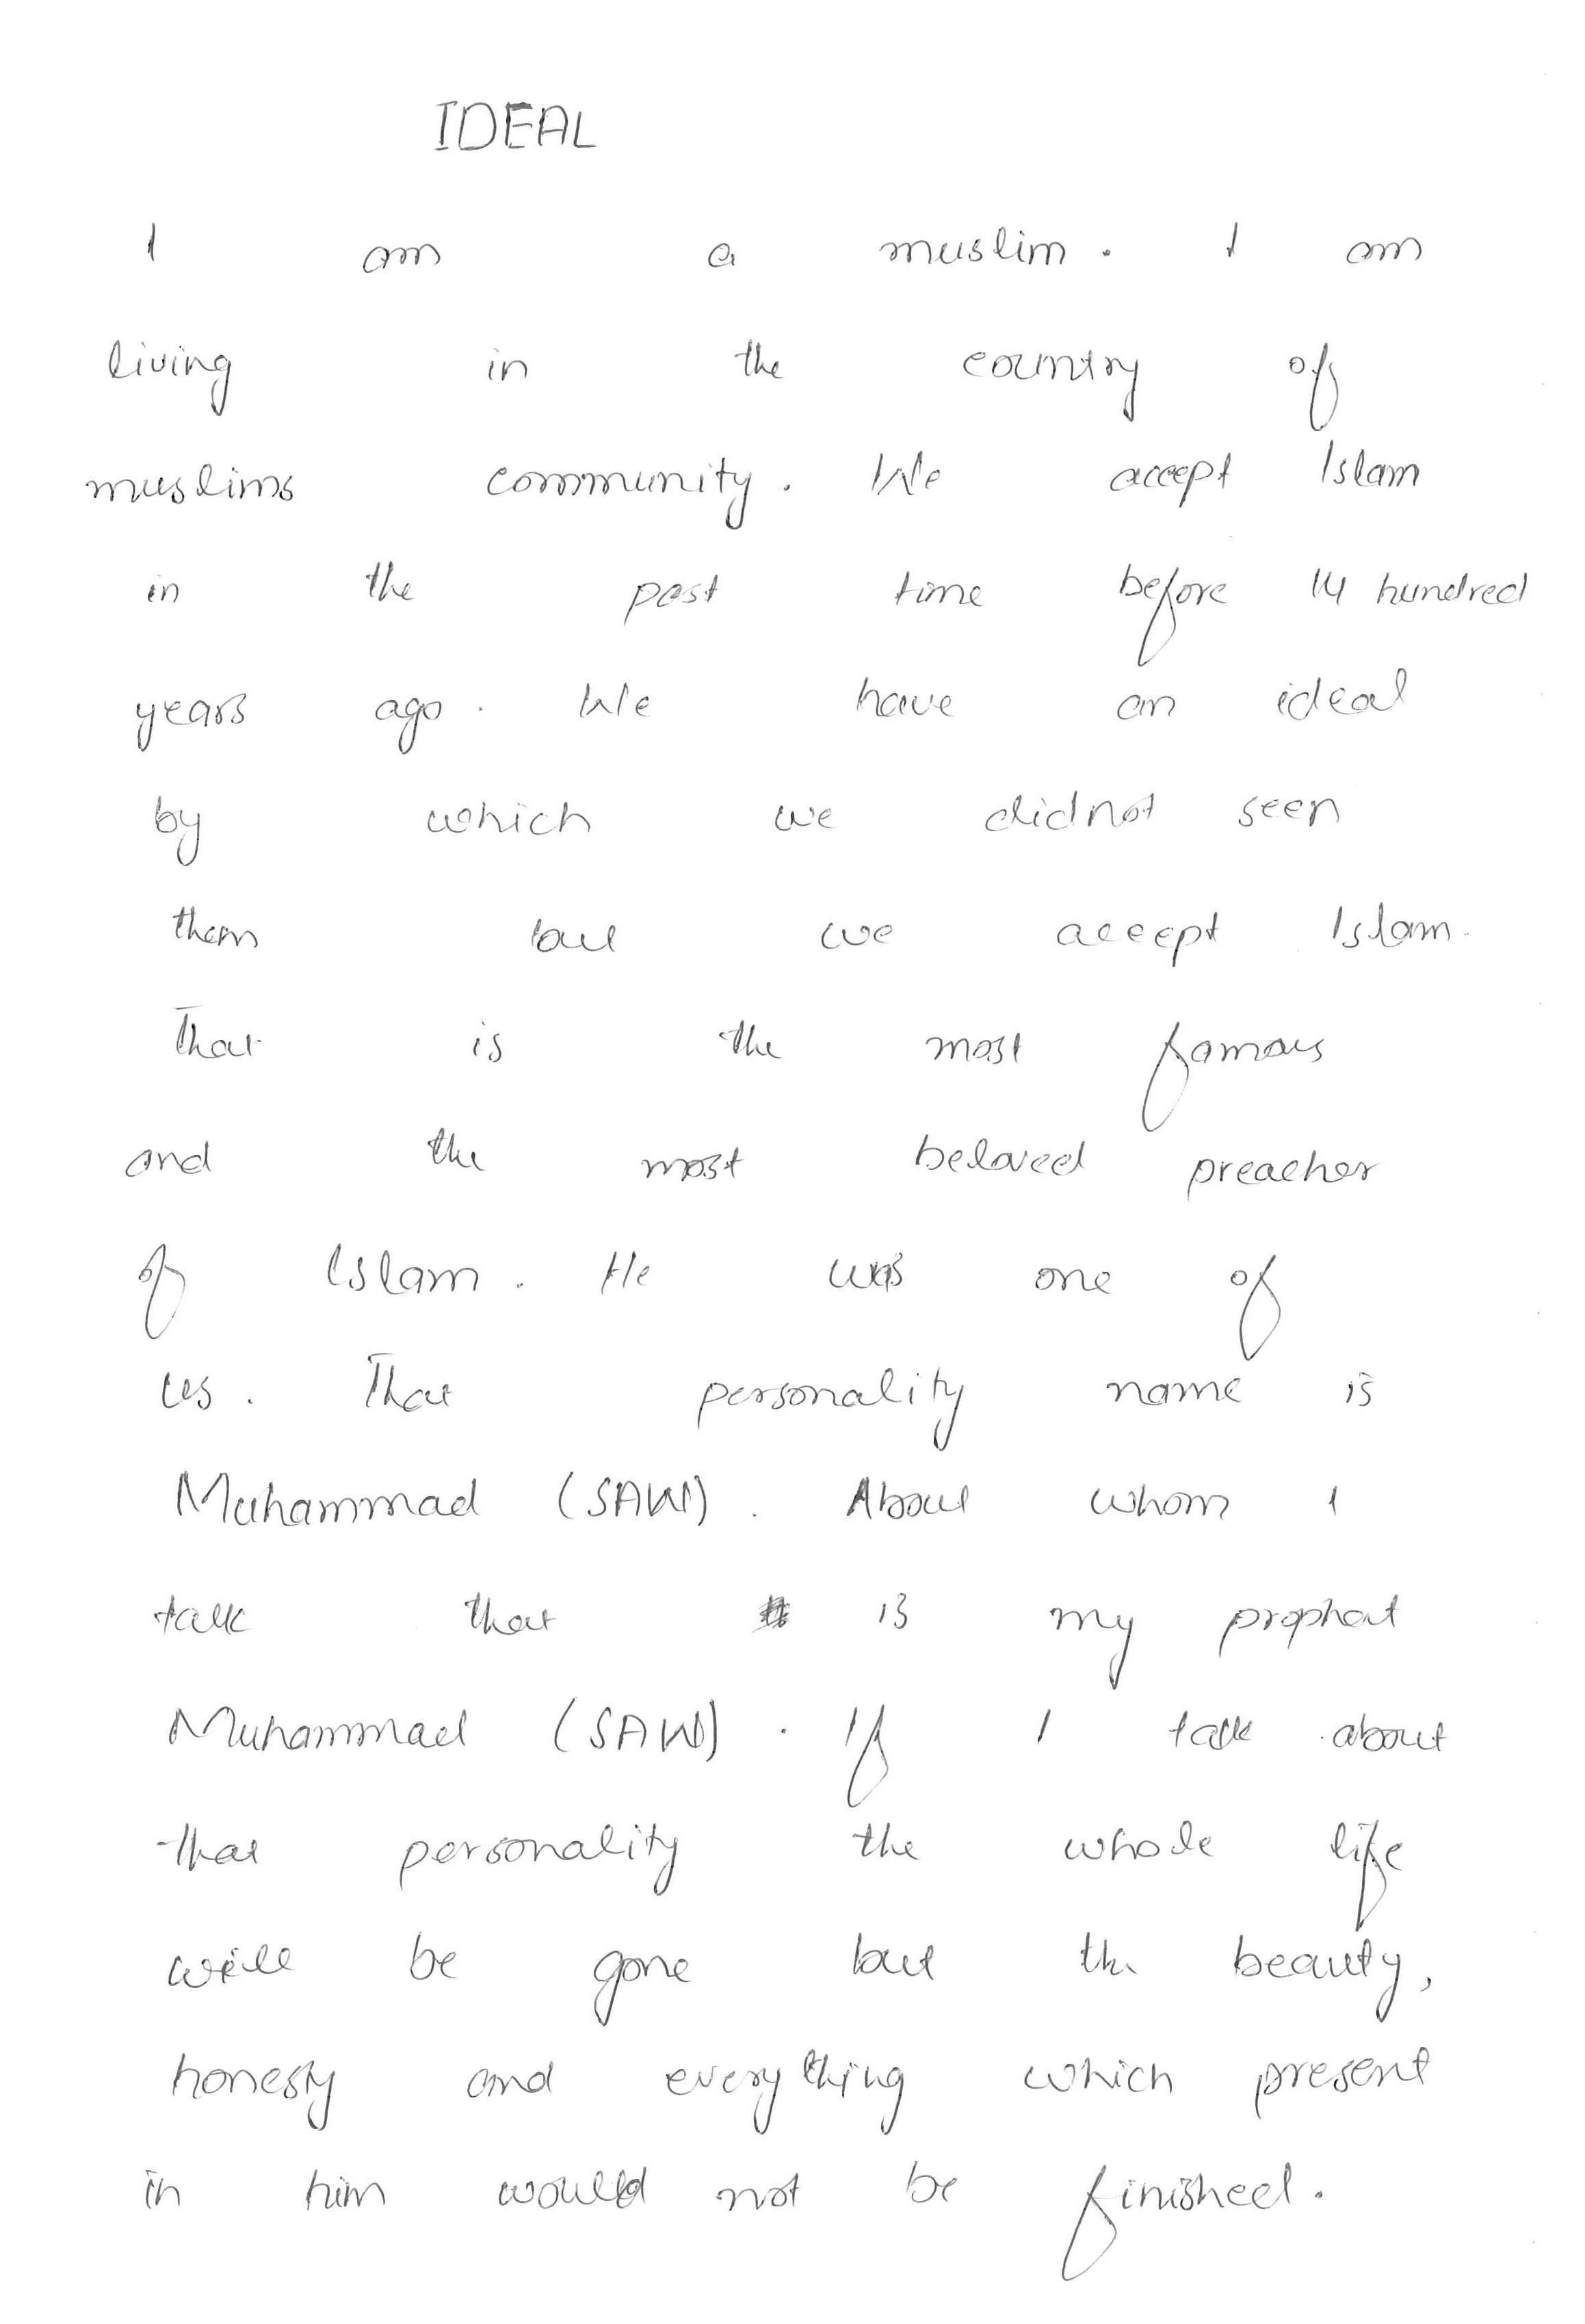 IDEAL
I am a muslim. I am
living in the country of
muslims community. We accept Islam
in the past time before 14 hundred
years ago. We have an ideal
by which we didnot seen
them but we accept Islam.
That is the most famous
and the most beloved preacher
of Islam. He was one of
us. That personality name is
Muhammad (SAW). About whom I
talk that is my prophat
Muhammad (SAW). If I talk about
that personality the whole life
will be gone but the beauty,
honesty and everything which present
in him would not be finished.